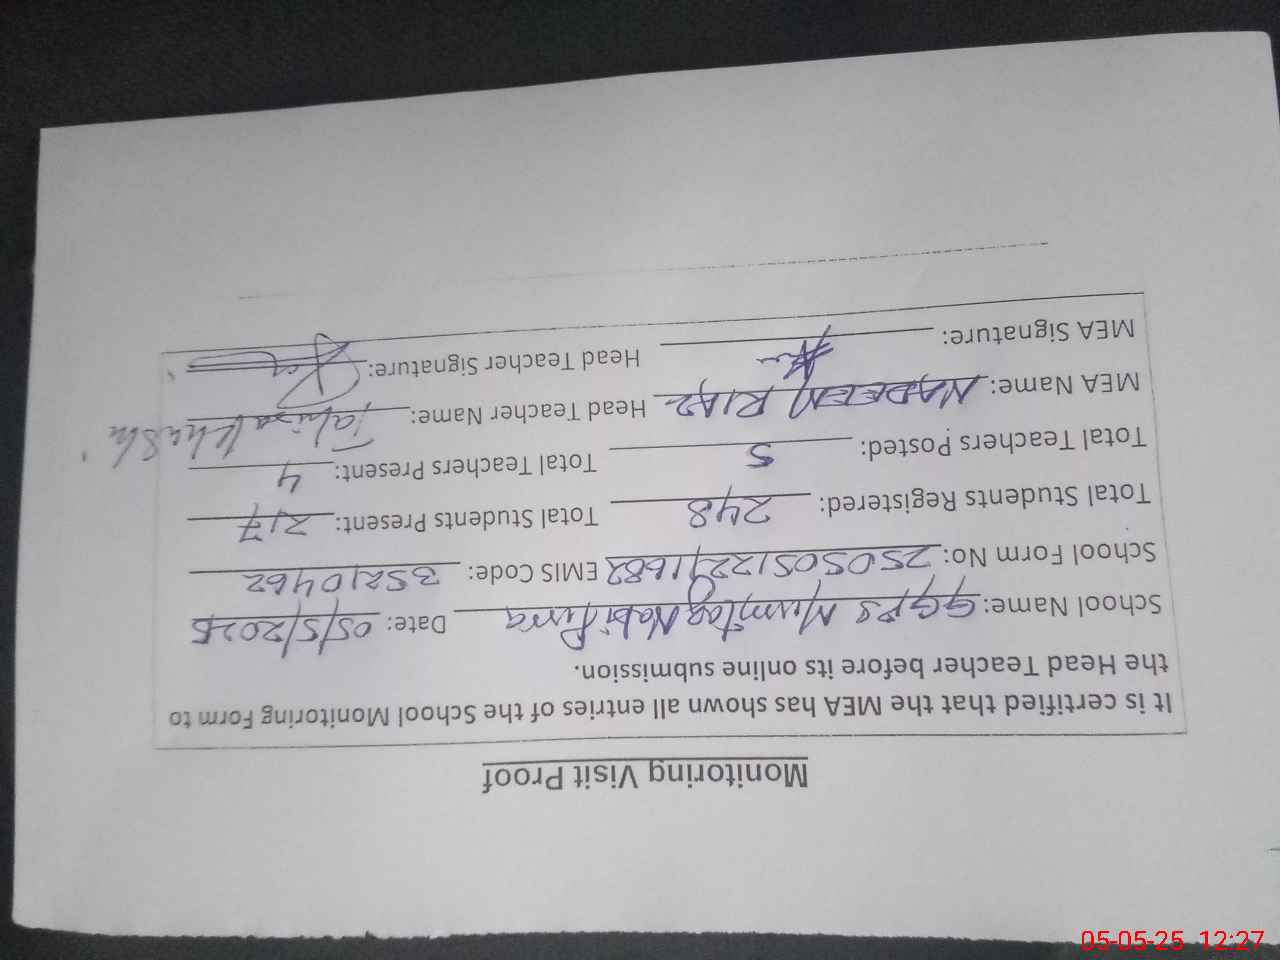 Monitoring Visit Proof
It is certified that the MEA has shown all entries of the School Monitoring Form to
the Head Teacher before its online submission.
School Name: GGPS Mumtaz Nabi Pura Date: 05/5/2025
School Form No: 250505122411682 EMIS Code: 35210462
Total Students Registered: 248 Total Students Present: 217
Total Teachers Posted: 5 Total Teachers Present: 4
MEA Name: NADEEM RIAZ Head Teacher Name: Tahira Khurshi
MEA Signature: Head Teacher Signature:
05-05-25 12:27